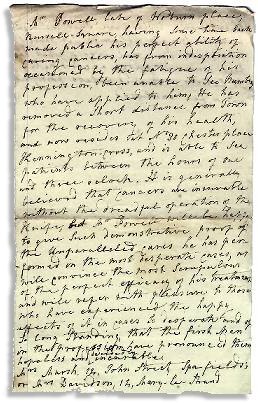 Mr Powell late of Hoburn place,
Russell-Square, having some time back
made public his perfect ability of
curing cancers, has from indisposition
occasioned by the fatigues of his
profession, been unable to see Number
who have applied to him; He has
removed a short distance from Town
for the recovery of his health,
and now resides at No 90 chester place
Kennington-cross, and is able to see
patients between the hours of one
and three oclock. It is generally
believed that cancers are incurable
without the dreadful operation of the
Knife, but Mr Powell will be happy
to give such demonstrative proof of
the Unparalleled cures he has per
formed in the most desperate cases, as
will convince the most Scrupulous
of the perfect efficacy of his Treatment
and will refer with pleasure to those
who have experienced the happy
effects of it in cases so desperate and of
so long Standing that the first Men
in the profession have pronounced them
hopeless and incurable.
Mrs Marsh, 39, John Street, Spafields
or Mrs Davidson, 12, Mary-le Strand